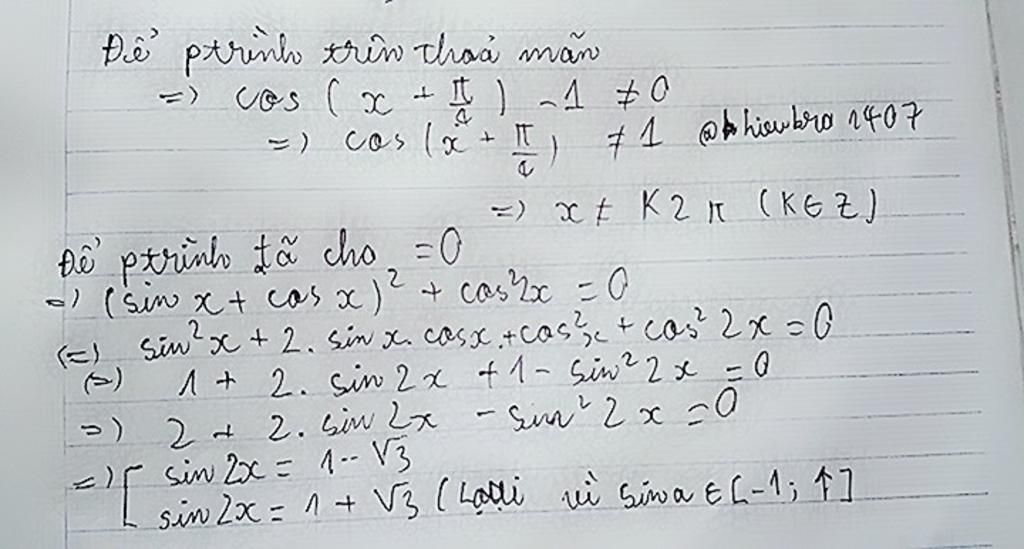 Để ptrình trên thoả mãn
=> cos ( x + π/2 ) - 1 ≠ 0
=> cos ( x + π/2 ) ≠ 1 @hieubro 1407
=> x ≠ K2π (K∈Z)
Để ptrình đã cho = 0
=> (sin x + cos x)² + cos²2x = 0
(=) sin²x + 2. sin x. cosx. + cos²x + cos² 2x = 0
(=) 1 + 2. sin 2x + 1 - sin² 2x = 0
=> 2 + 2. sin 2x - sin² 2x = 0
=> [ sin 2x = 1 - √3
sin 2x = 1 + √3 ( Loại vì sin a ∈ [-1; 1]